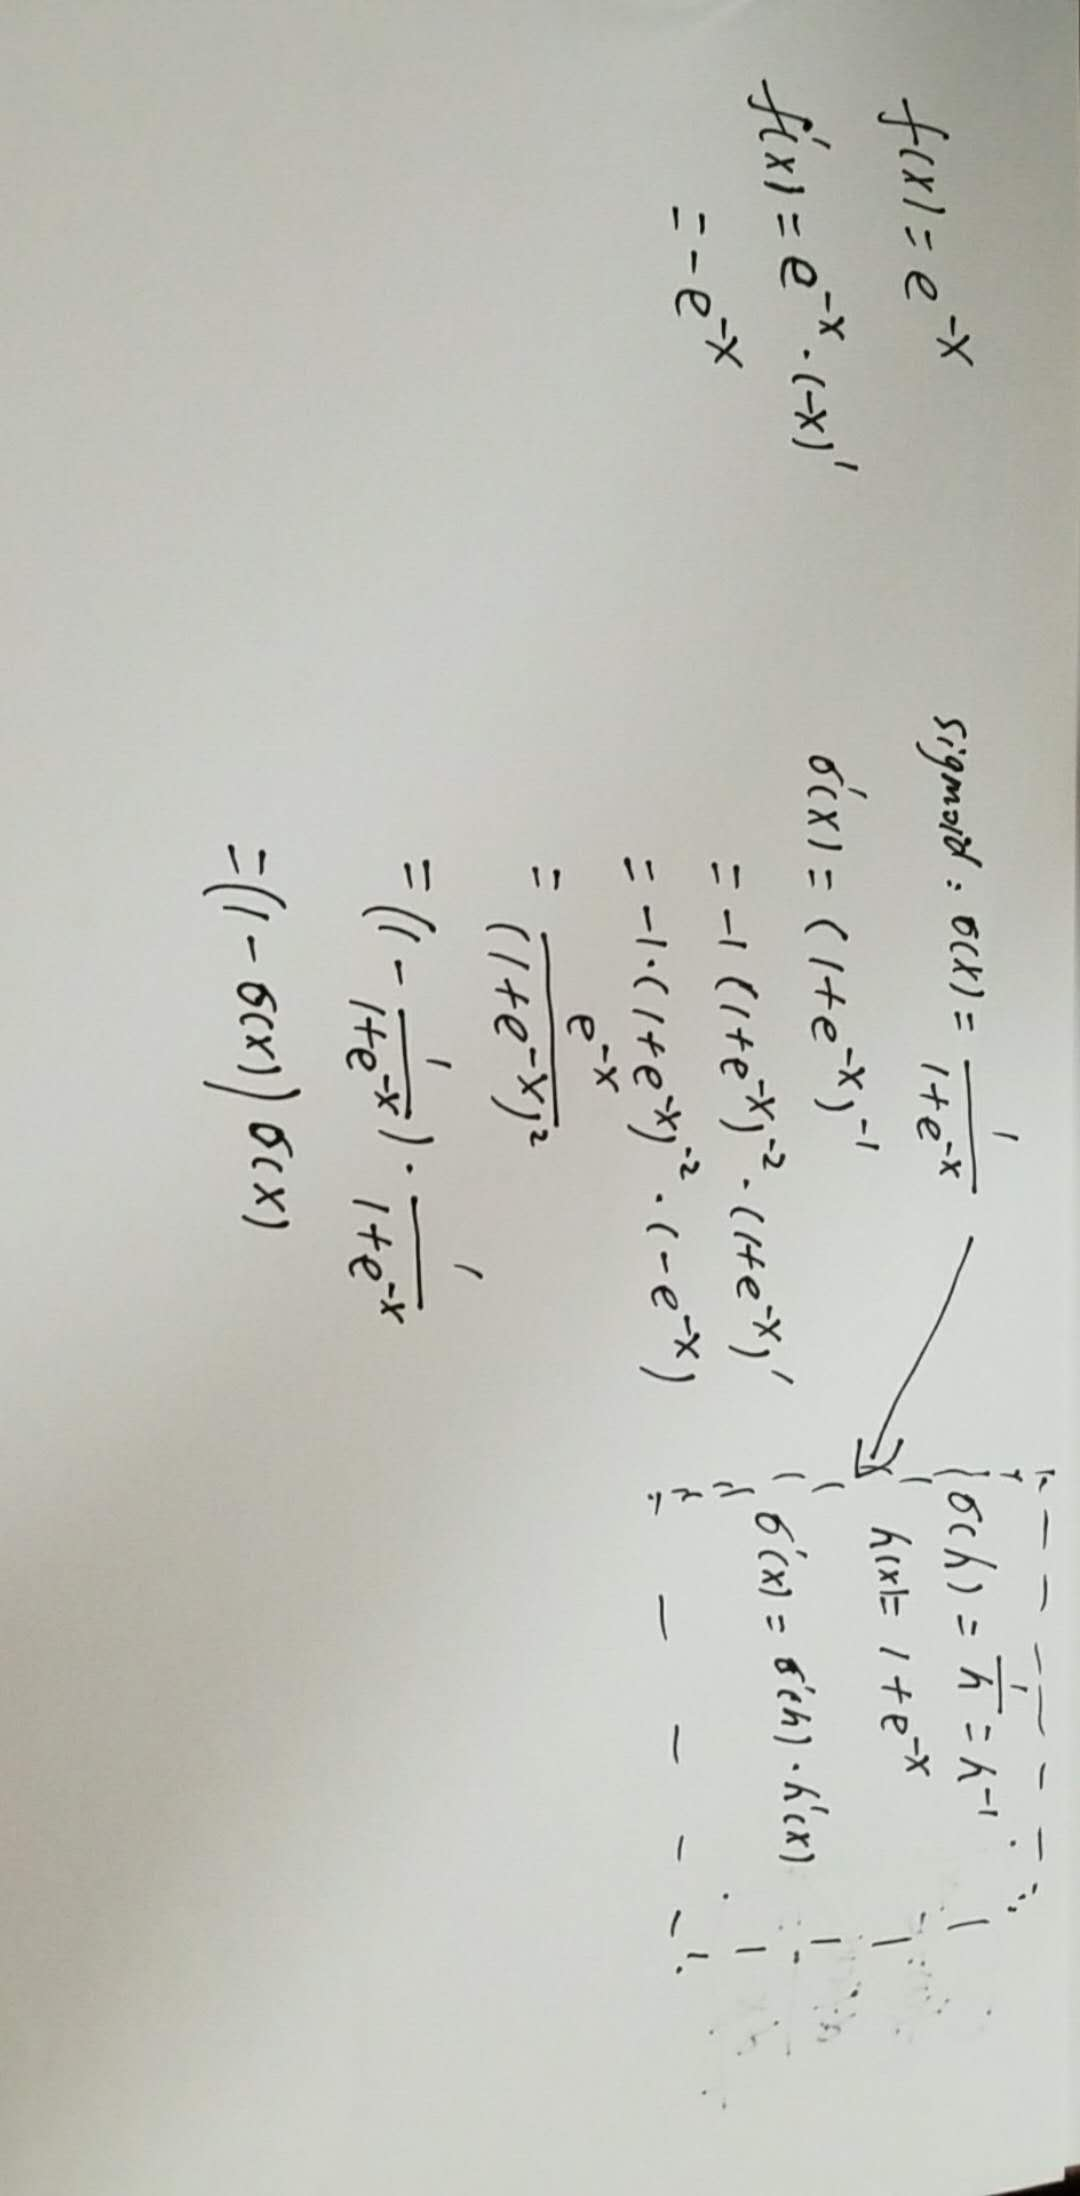 f(x) = e^{-x}
f'(x) = e^{-x} · (-x)'
= -e^{-x}
sigmoid : σ(x) = \frac{1}{1+e^{-x}}
σ'(x) = (1+e^{-x})^{-1}
= -1 (1+e^{-x})^{-2} · (1+e^{-x})'
= -1 · (1+e^{-x})^{-2} · (-e^{-x})
= \frac{e^{-x}}{(1+e^{-x})^2}
= (1 - \frac{1}{1+e^{-x}}) · \frac{1}{1+e^{-x}}
= (1 - σ(x)) σ(x)
σ(h) = \frac{1}{h} = h^{-1}
h(x) = 1 + e^{-x}
σ'(x) = σ'(h) · h'(x)